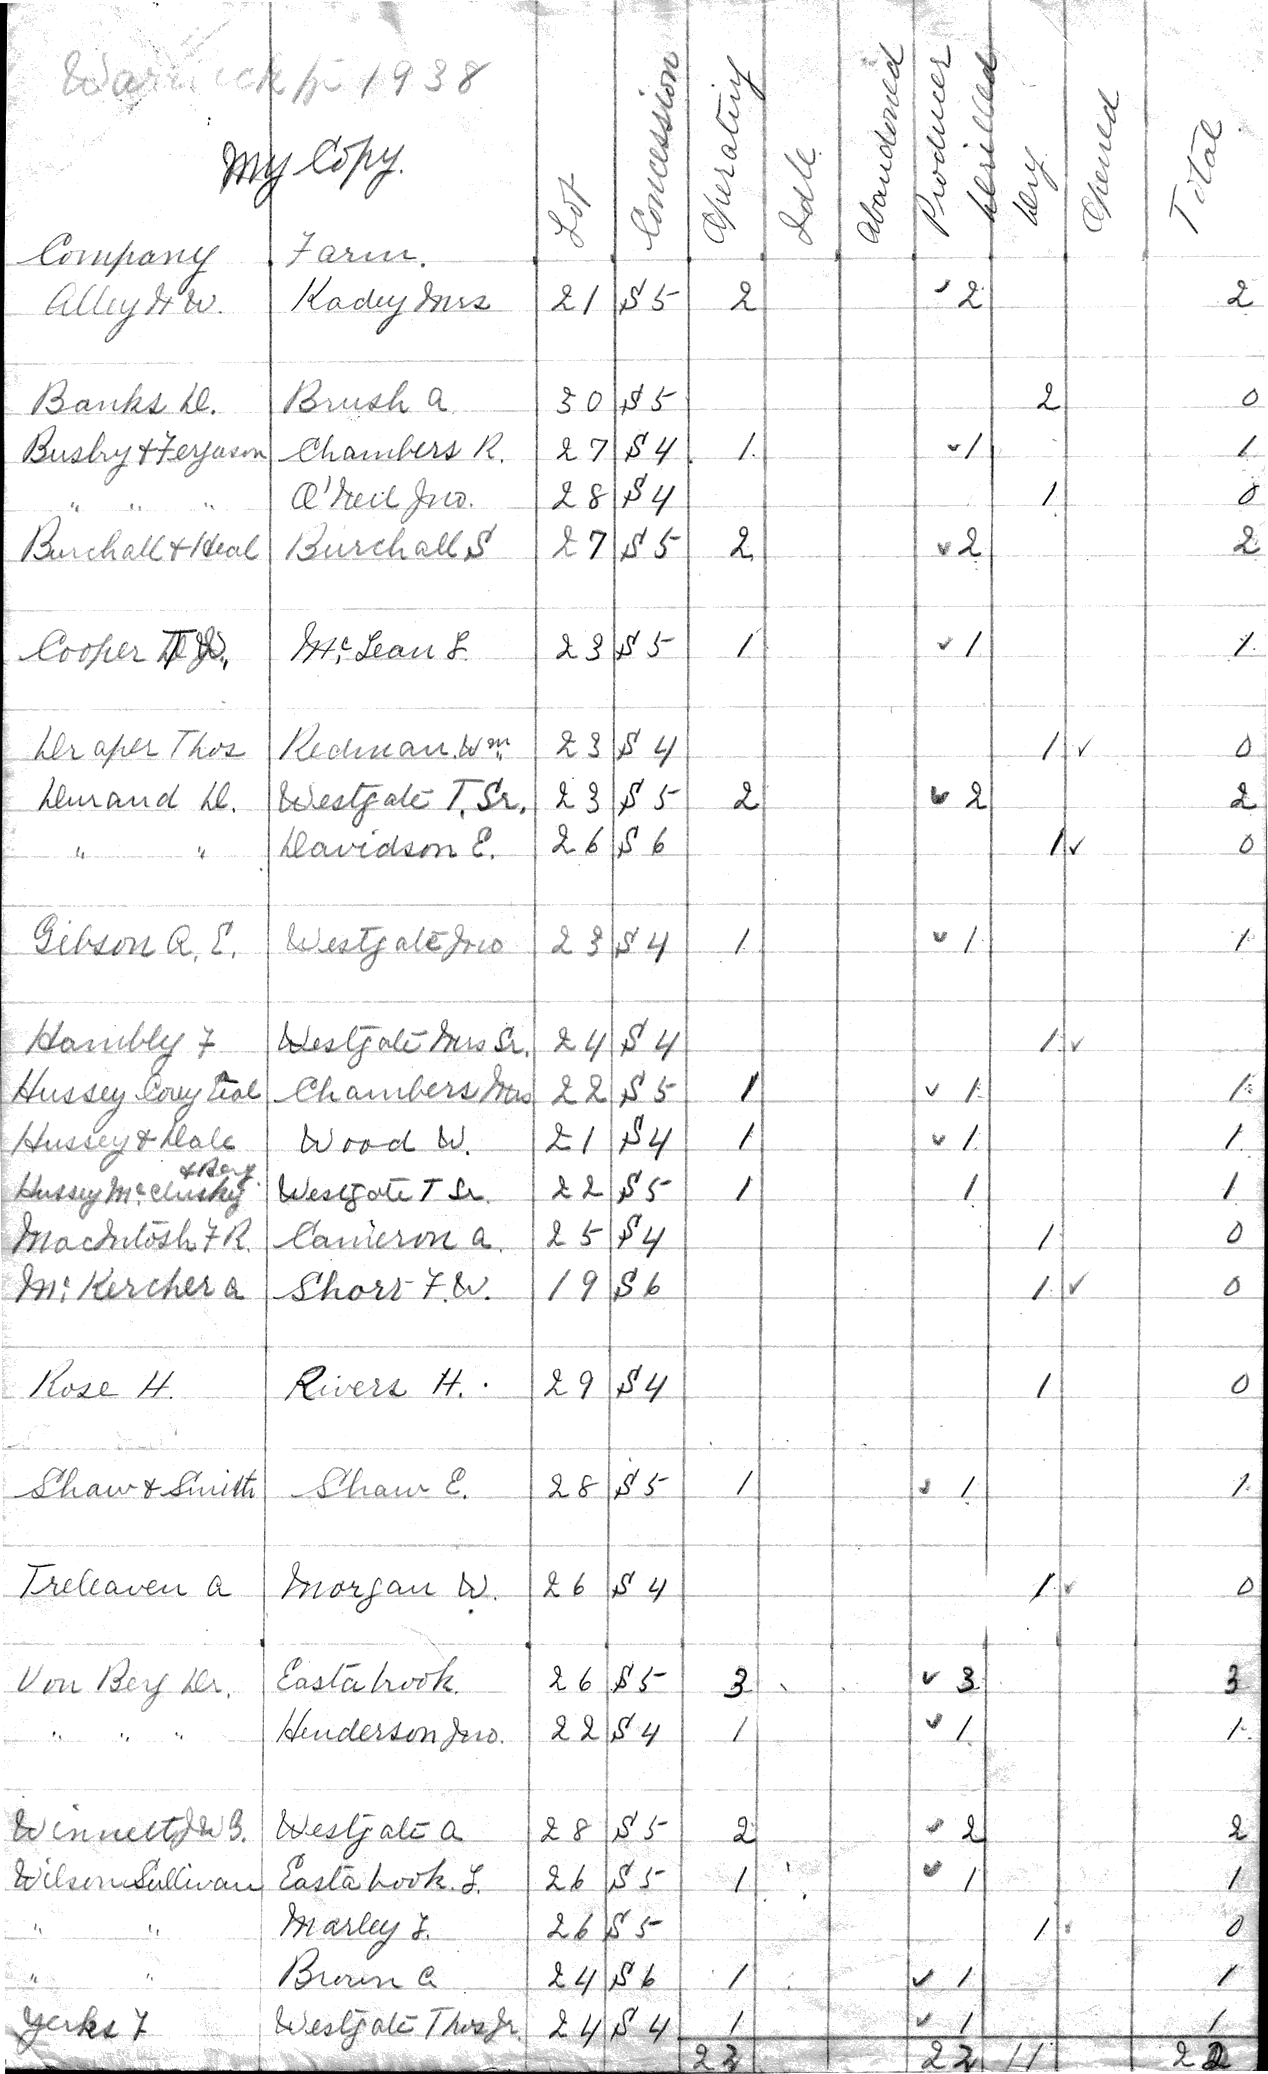 Warwick Tp 1938
My Copy.
Company Farm. Lot Concession Operating Idle Abandoned Producer Drilled Dry Opened Total
Alley H W. Kadey Mrs 21 S 5 2 ✓2 2
Banks D. Brush A 30 S 5 2 0
Busby & Ferguson Chambers R. 27 S 4 1 ✓1 1
" " " O'Neil Jno. 28 S 4 1 0
Burchall & Heal Burchall S 27 S 5 2 ✓2 2
Cooper McLean L. 23 S 5 1 ✓1 1
Draper Thos Redman. Wm. 23 S 4 1 ✓ 0
Durand D. Westgate T. Sr. 23 S 5 2 ✓2 2
" " Davidson E. 26 S 6 1 ✓ 0
Gibson A. E. Westgate Jno 23 S 4 1 ✓1 1
Hambly F Westgate Mrs Sr. 24 S 4 1 ✓
Hussey Coey Eval Chambers Mrs 22 S 5 1 ✓1 1
Hussey & Dale Wood W. 21 S 4 1 ✓1 1
& Berg.
Hussey McClusky Westgate T Sr. 22 S 5 1 1 1
MacIntosh F R. Cameron A. 25 S 4 1 0
Mc Kercher A Short F. W. 19 S 6 1 ✓ 0
Rose H. Rivers H. 29 S 4 1 0
Shaw & Smith Shaw E. 28 S 5 1 ✓1 1
Treleaven A Morgan W. 26 S 4 1 ✓ 0
Von Berg Dr. Eastabrook. 26 S 5 3 ✓3 3
" " " Henderson Jno. 22 S 4 1 ✓1 1
Winnett J W B. Westgate A 28 S 5 2 ✓2 2
Wilson Sullivan Eastabrook. L. 26 S 5 1 ✓1 1
" " Marley L. 26 S 5 1 0
" " Brown C 24 S 6 1 ✓1 1
Yerks F Westgate Thos Jr. 24 S 4 1 ✓1 1
22 22 11 22